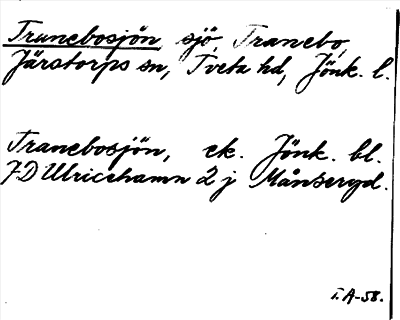 Tranebosjön, sjö, Tranebo,
Järstorps sn, Tveta hd, Jönk. l.
Tranebosjön, ek. Jönk. bl.
7D Ulricehamn 2 j Månseryd.
T. A-58.